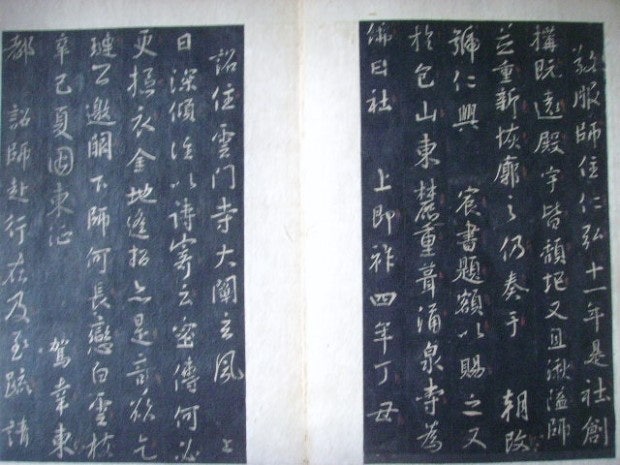 敬服師住仁弘十一年是社創
構既遠殿宇皆頹圮又且湫隘師
並重新恢廓之仍奏于 朝改
號仁興 宸書題額以賜之又
於包山東麓重葺涌泉寺為
社 上即祚四年丁丑
詔住雲門寺大闡玄風 上
日深傾注以詩寄云密傳何必
更摳衣金地逢招亦是歸欲乞
璉公邀闕下師何長戀白雲扉
辛巳夏因東征 駕幸東
都 詔師赴行在及至疏請